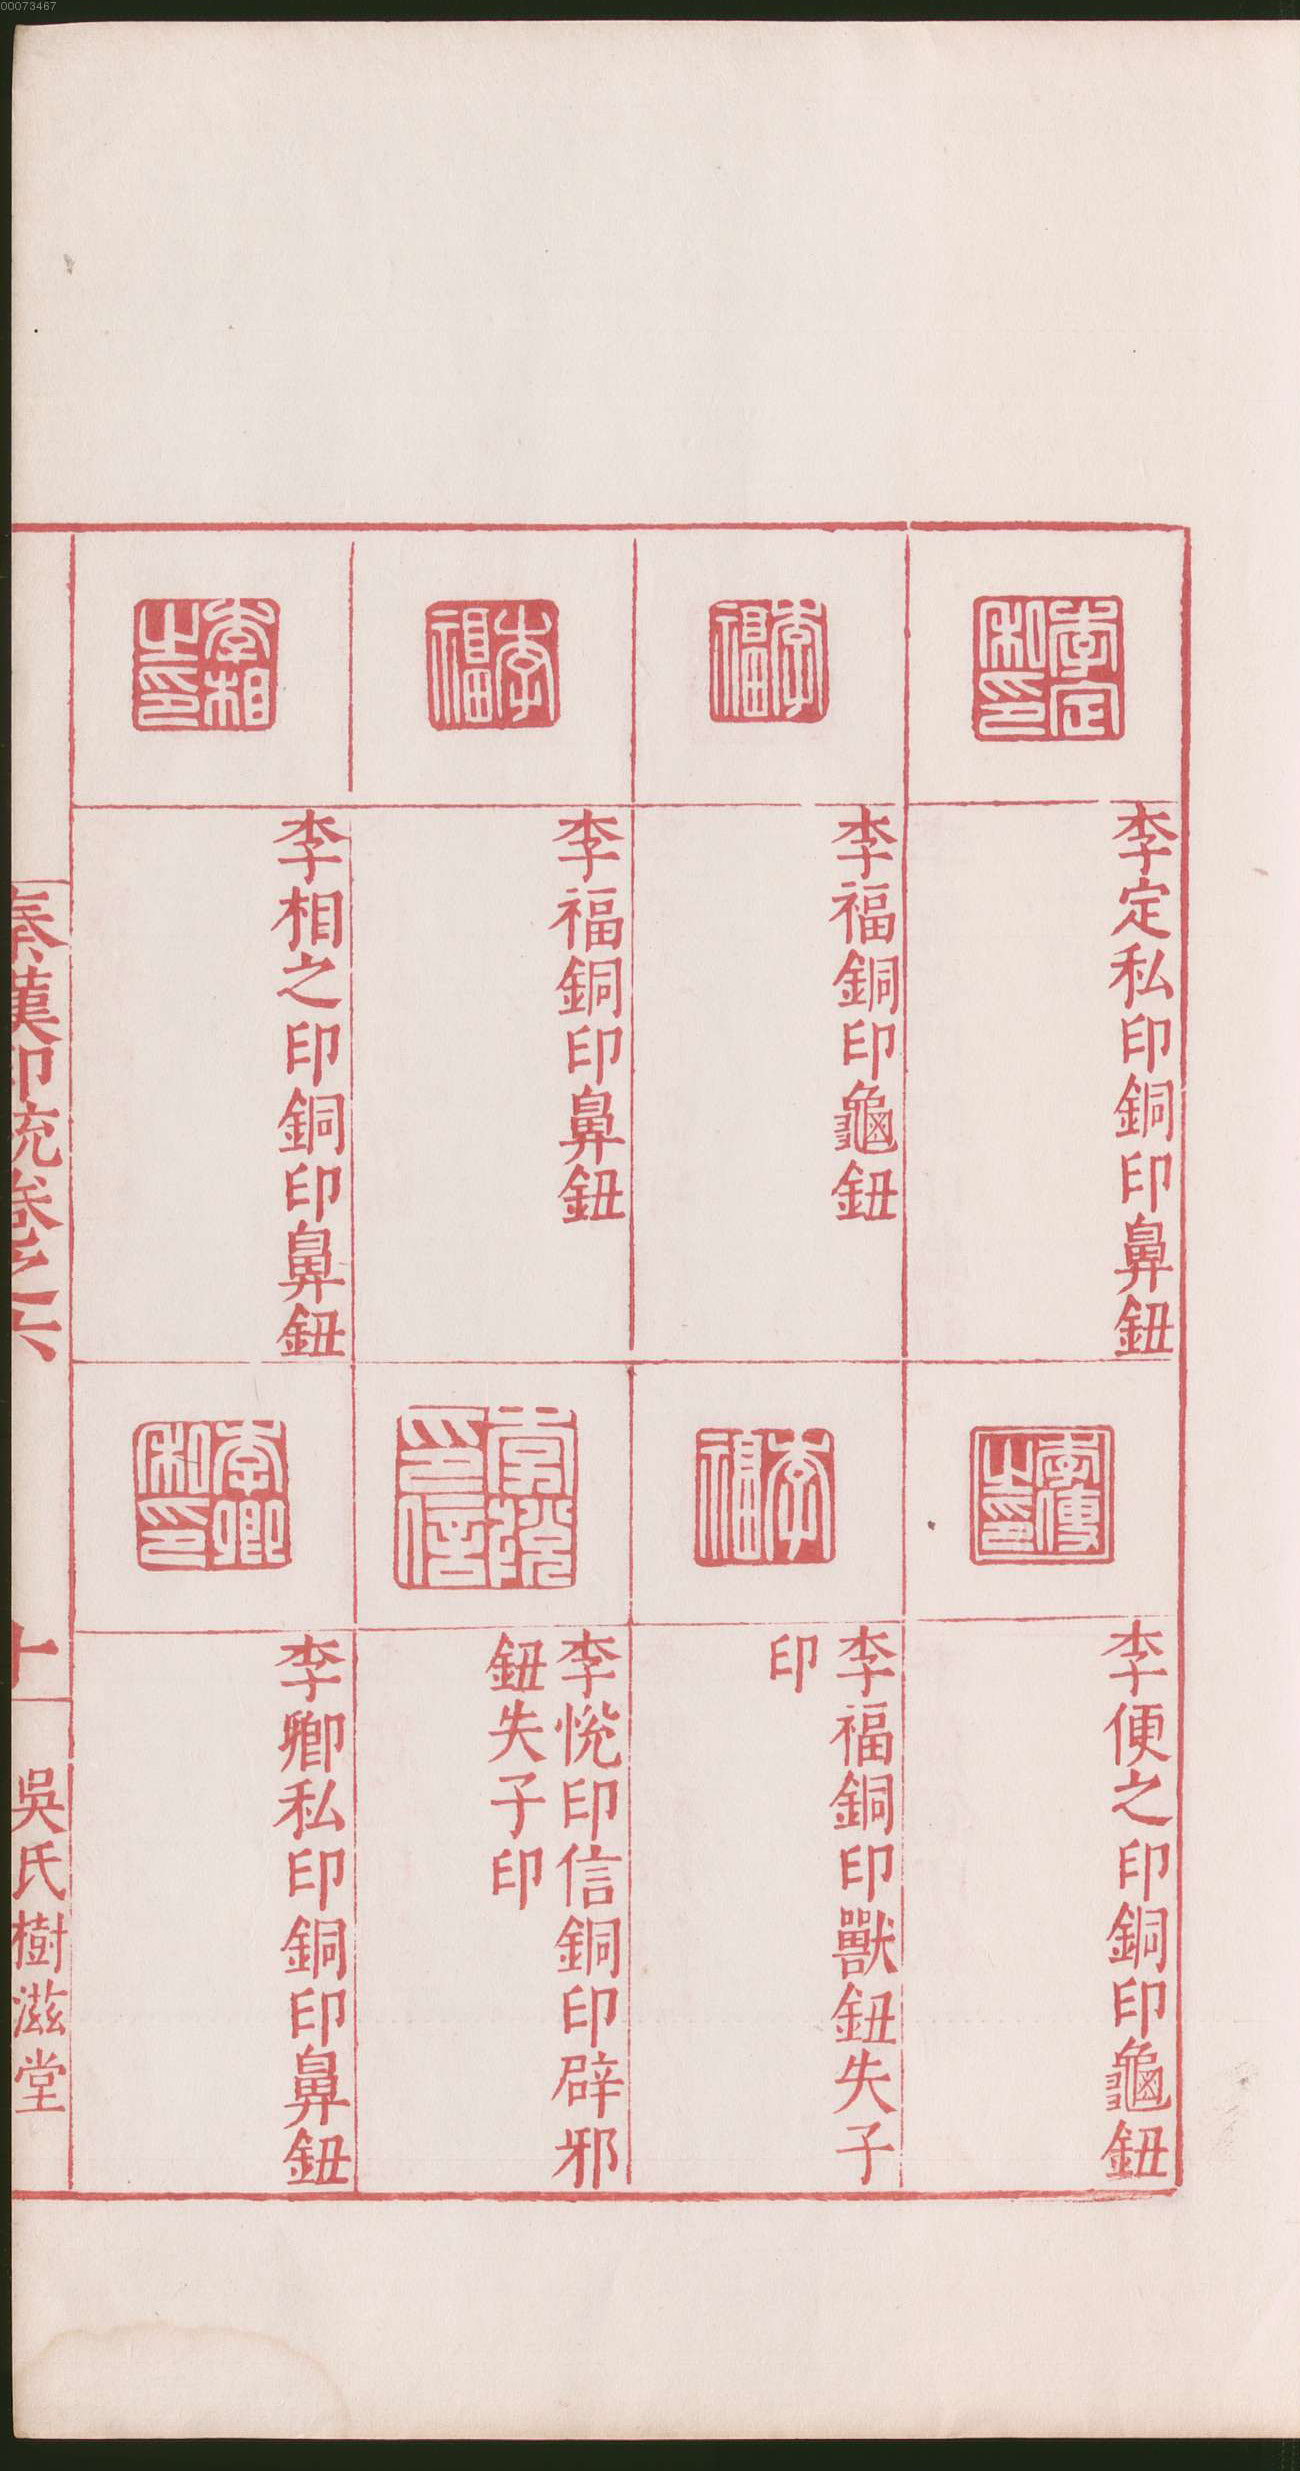 00073467
李定私印
李定私印銅印鼻鈕
李福
李福銅印龜鈕
李福
李福銅印鼻鈕
李相之印
李相之印銅印鼻鈕
李便之印
李便之印銅印龜鈕
李福
李福銅印獸鈕失子
印
李悅印信
李悅印信銅印辟邪
鈕失子印
李卿私印
李卿私印銅印鼻鈕
秦漢印統卷之六
十
吳氏樹滋堂